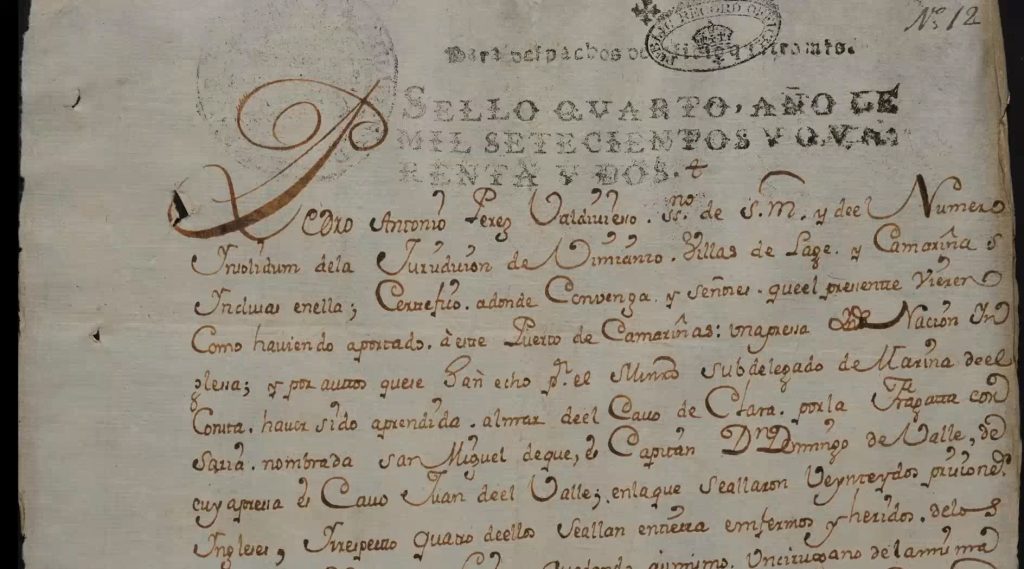 Nº 12
PUBLIC RECORD OFFICE
Para despachos de oficio quatro mrs.
SELLO QVARTO, AÑO DE
MIL SETECIENTOS Y QVA
RENTA Y DOS.
Pedro Antonio Perez Valdivieso. ssno. de S.M. y deel Numero
Insolidum dela Jurisdicion de Vimianzo. Villas de Lage. y Camariña s
Inclusas enella; Certefico. adonde Convenga. y señores. queel presente Vieren
Como haviendo aportado. à este Puerto de Camariñas: una presa de Nación In
glesa; y por auttos quese han echo pr. el Minro Subdelegado de Marina deel
Consta. haver sido aprendida. almar deel Cavo de Clara. por la Fragatta cor
saria. nombrada san Miguel deque, es Capitán Dn. Domingo de Valle, de
cuya presa es Cavo Juan deel Valle; enlaque seallaron Veynteydos prisioneros
Ingleses, Irrespecto quatro deellos seallan entierra emfermos y heridos. delos
Quedando asimismo. Un cirujano dela misma